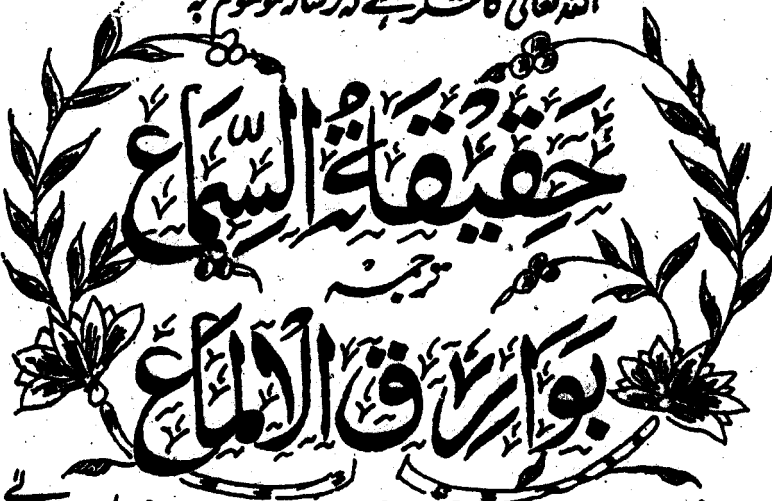 اللہ تعالیٰ کا شکر ہے کہ رسالہ موسوم بہ
حَقِيقَةُ السِّمَاع
ترجمہ
بَوَارِقُ الْاِلْمَاع